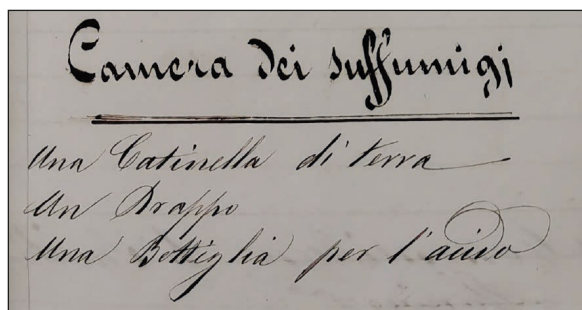 Camera dei suffumigi
Una Catinella di terra
Un Drappo
Una Bottiglia per l'acido